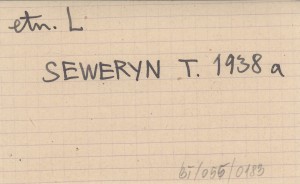 etn. L
SEWERYN T. 1938 a
bi/055/0183